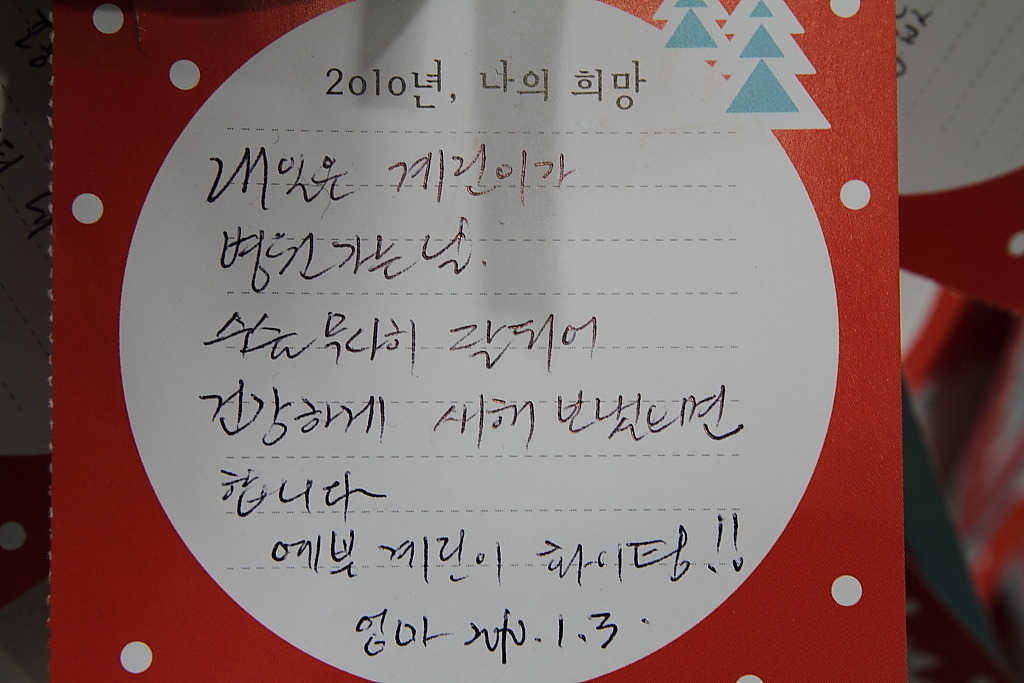 2010년, 나의 희망
내일은 계린이가
병원 가는 날.
수술 무사히 잘되어
건강하게 새해 보냈으면
합니다
예쁜 계린이 화이팅!!
엄마 2010.1.3.